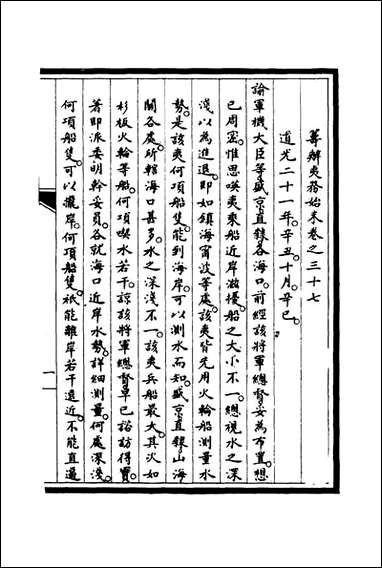 籌辦夷務始末卷之三十七
道光二十一年辛丑十月辛巳
諭軍機大臣等盛京直隸各海口前經該將軍總督妥為布置想
已周密惟思㗆夷乘船近岸滋擾船之大小不一總視水之深
淺以為進退即如鎮海甯波等處該夷皆先用火輪船測量水
勢是該夷何項船隻能到海岸可以測水而知盛京直隸山海
關各處所轄海口甚多水之深淺不一該夷兵船最大其次如
杉板火輪等船何項喫水若干諒該將軍總督早已諮訪得實
著即派委明幹妥員各就海口近岸水勢詳細測量何處深淺
何項船隻可以攏岸何項船隻祇能離岸若干遠近不能直逼
一